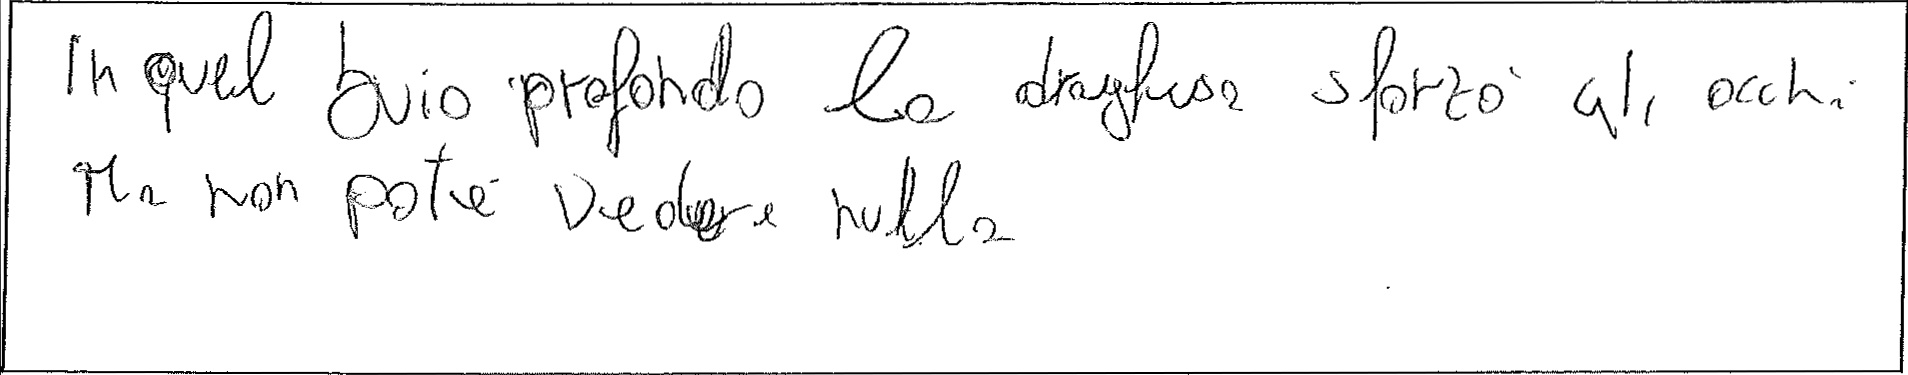 In quel buio profondo la draghessa sforzò gli occhi
Ma non poté vedere nulla